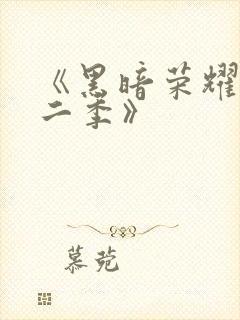 《黑暗荣耀
二季》
慕菀